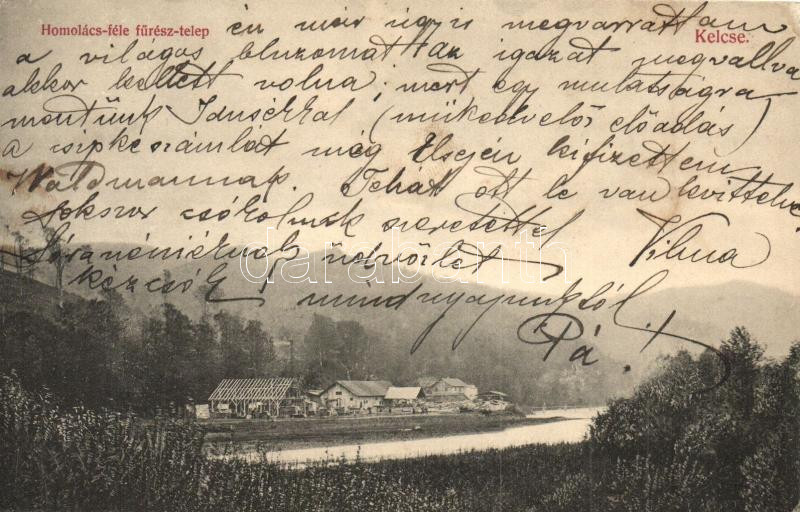 Homolács-féle fűrész-telep
Kelcse.
én már úgy is megvarrattam
a világos bluzomat az igazat megvallva
akkor kellett volna, mert egy mulatságra
mentünk (műkedvelő előadás)
a csipkeszámlát még kifizettem
Waldmannak. Tehát ott le van kvittelve
sokszor csókolunk szeretettel Vilma
üdvözlet
kézcsók mindnyájunktól
Pá
darabanth